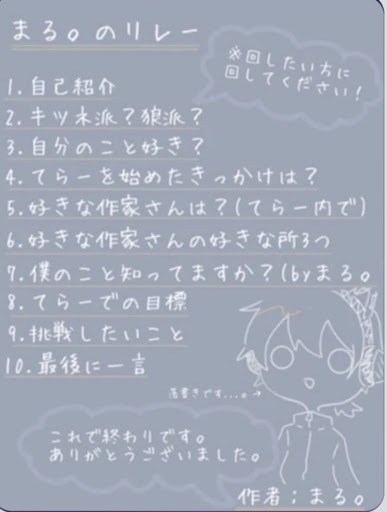 まる。のリレー
※回したい方に
回してください！
1.自己紹介
2.キツネ派？狼派？
3.自分のこと好き？
4.てらーを始めたきっかけは？
5.好きな作家さんは？(てらー内で)
6.好きな作家さんの好きな所3つ
7.僕のこと知ってますか？(byまる。
8.てらーでの目標
9.挑戦したいこと
10.最後に一言
落書きです...。→
これで終わりです。
ありがとうございました。
作者：まる。